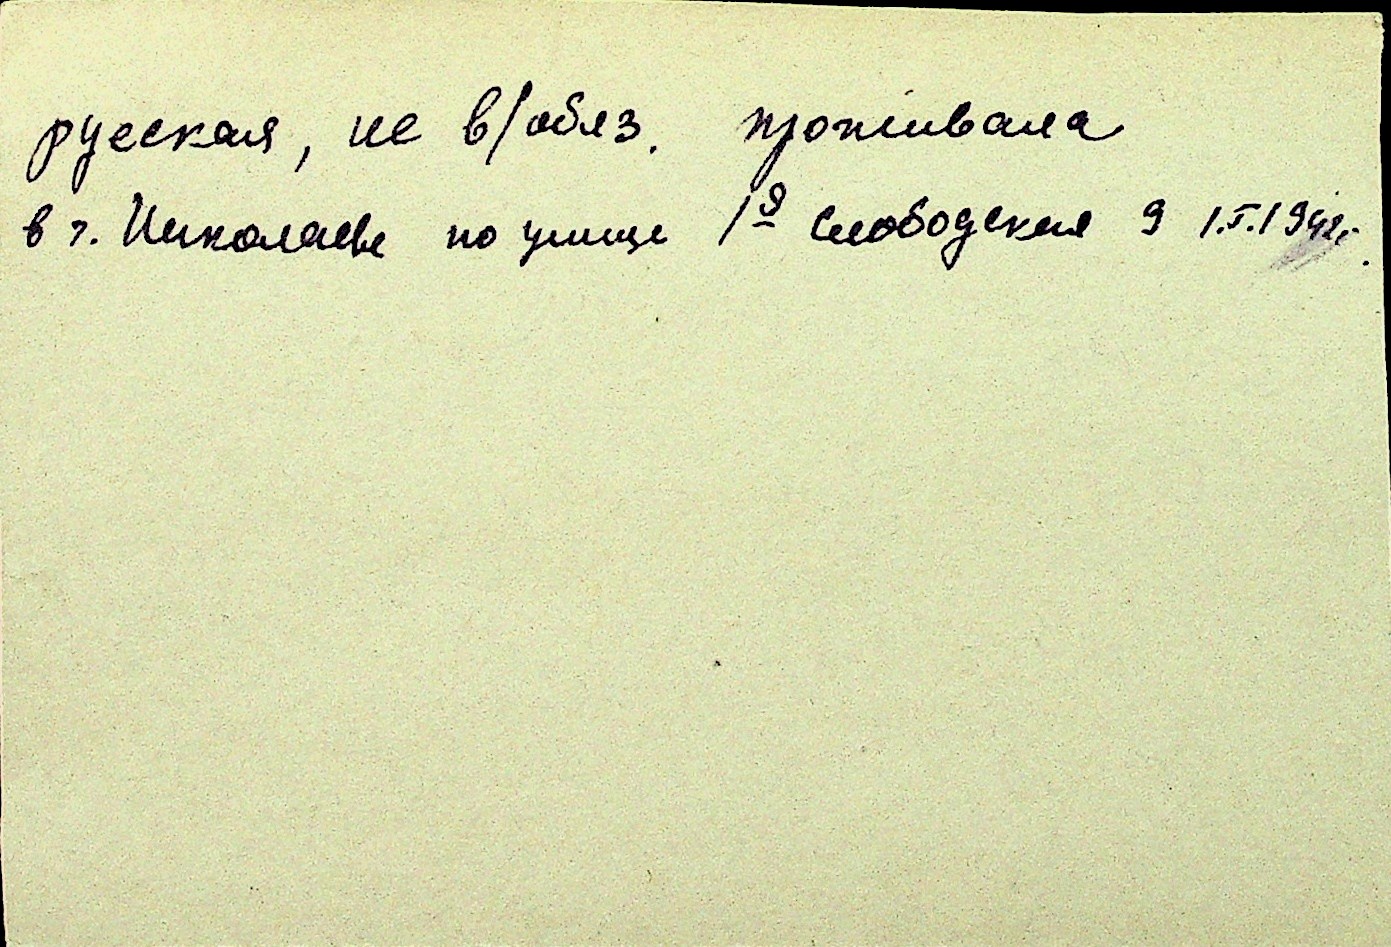 русская, не в/обяз. проживала
в г. Николаеве по улице 1я Слободская 9 1.I.1942г.